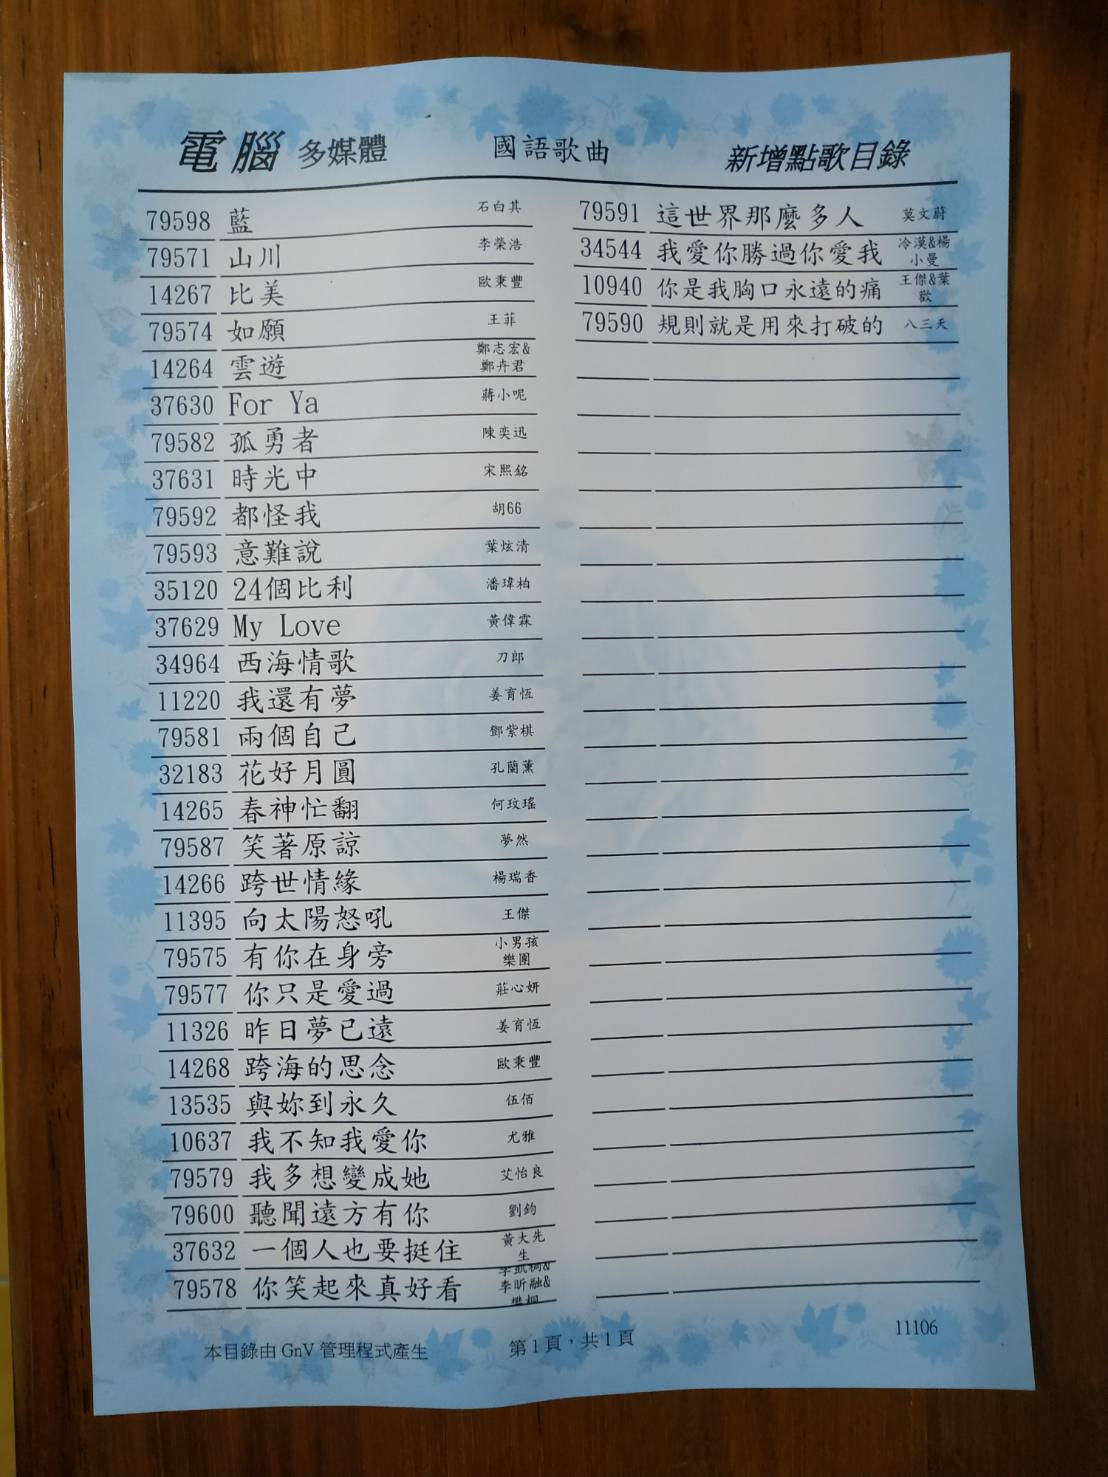 電腦 多媒體 國語歌曲 新增點歌目錄
79598 藍 石白其
79571 山川 李榮浩
14267 比美 歐秉豐
79574 如願 王菲
14264 雲遊 鄭志宏&鄭卉君
37630 For Ya 蔣小呢
79582 孤勇者 陳奕迅
37631 時光中 宋熙銘
79592 都怪我 胡66
79593 意難說 葉炫清
35120 24個比利 潘瑋柏
37629 My Love 黃偉霖
34964 西海情歌 刀郎
11220 我還有夢 姜育恆
79581 兩個自己 鄧紫棋
32183 花好月圓 孔蘭薰
14265 春神忙翻 何玟瑤
79587 笑著原諒 夢然
14266 跨世情緣 楊瑞香
11395 向太陽怒吼 王傑
79575 有你在身旁 小男孩樂團
79577 你只是愛過 莊心妍
11326 昨日夢已遠 姜育恆
14268 跨海的思念 歐秉豐
13535 與妳到永久 伍佰
10637 我不知我愛你 尤雅
79579 我多想變成她 艾怡良
79600 聽聞遠方有你 劉鈞
37632 一個人也要挺住 黃大先生
79578 你笑起來真好看 李昕融&
79591 這世界那麼多人 莫文蔚
34544 我愛你勝過你愛我 冷漠&楊小曼
10940 你是我胸口永遠的痛 王傑&葉歡
79590 規則就是用來打破的 八三夭
本目錄由 GnV 管理程式產生 第 1 頁，共 1 頁 11106